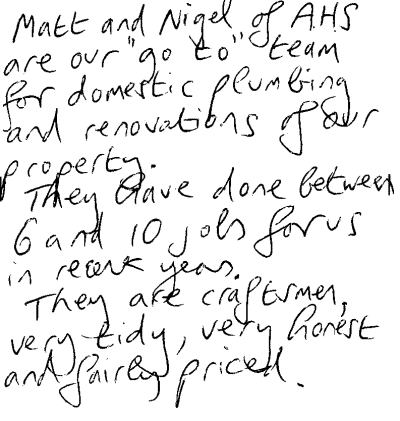 Matt and Nigel of AHS
are our "go to" team
for domestic plumbing
and renovations of our
property.
They have done between
6 and 10 jobs for us
in recent years.
They are craftsmen,
very tidy, very honest
and fairly priced.